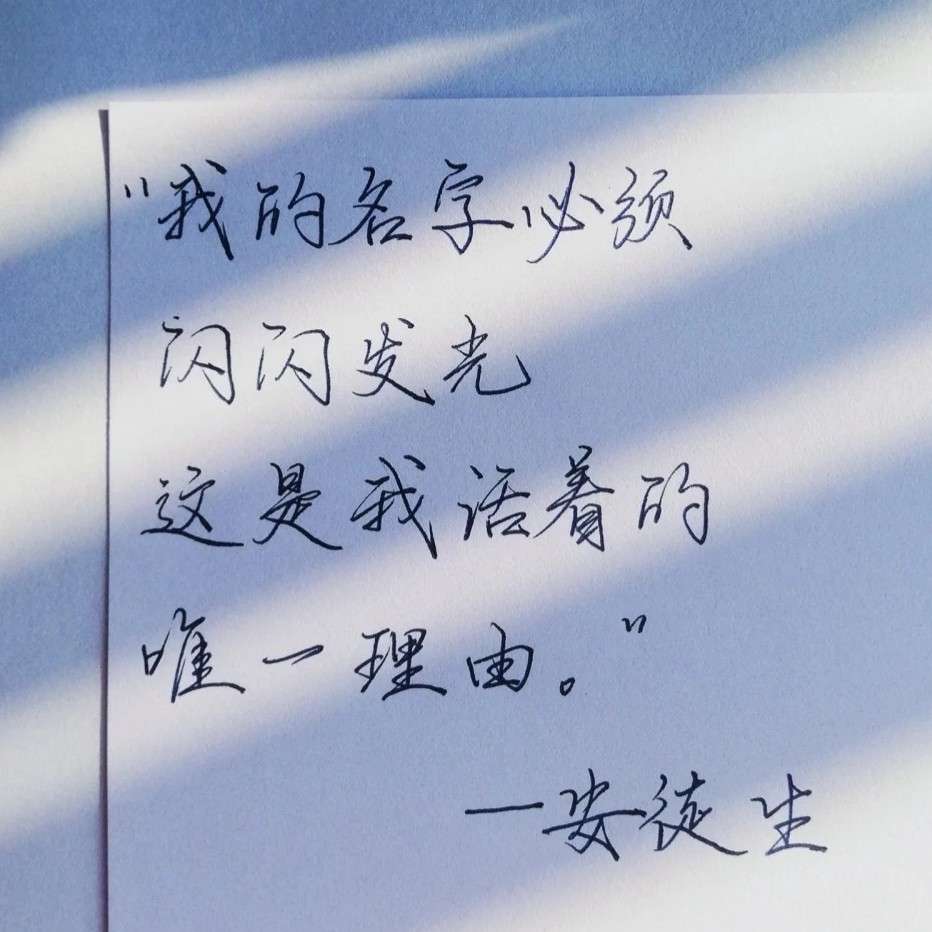 “我的名字必须
闪闪发光
这是我活着的
唯一理由。”
—安徒生